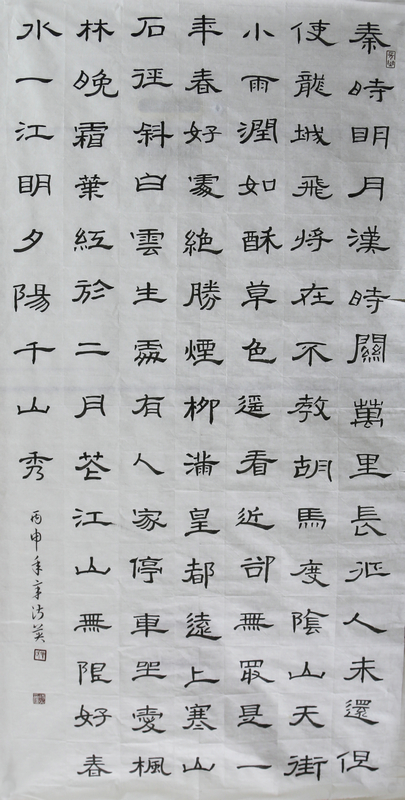 秦時明月漢時關萬里長征人未還但
使龍城飛將在不教胡馬度陰山天街
小雨潤如酥草色遥看近卻無最是一
年春好處絶勝煙柳滿皇都遠上寒山
石徑斜白雲生處有人家停車坐愛楓
林晚霜葉紅於二月花江山無限好春
水一江明夕陽千山秀
丙申年